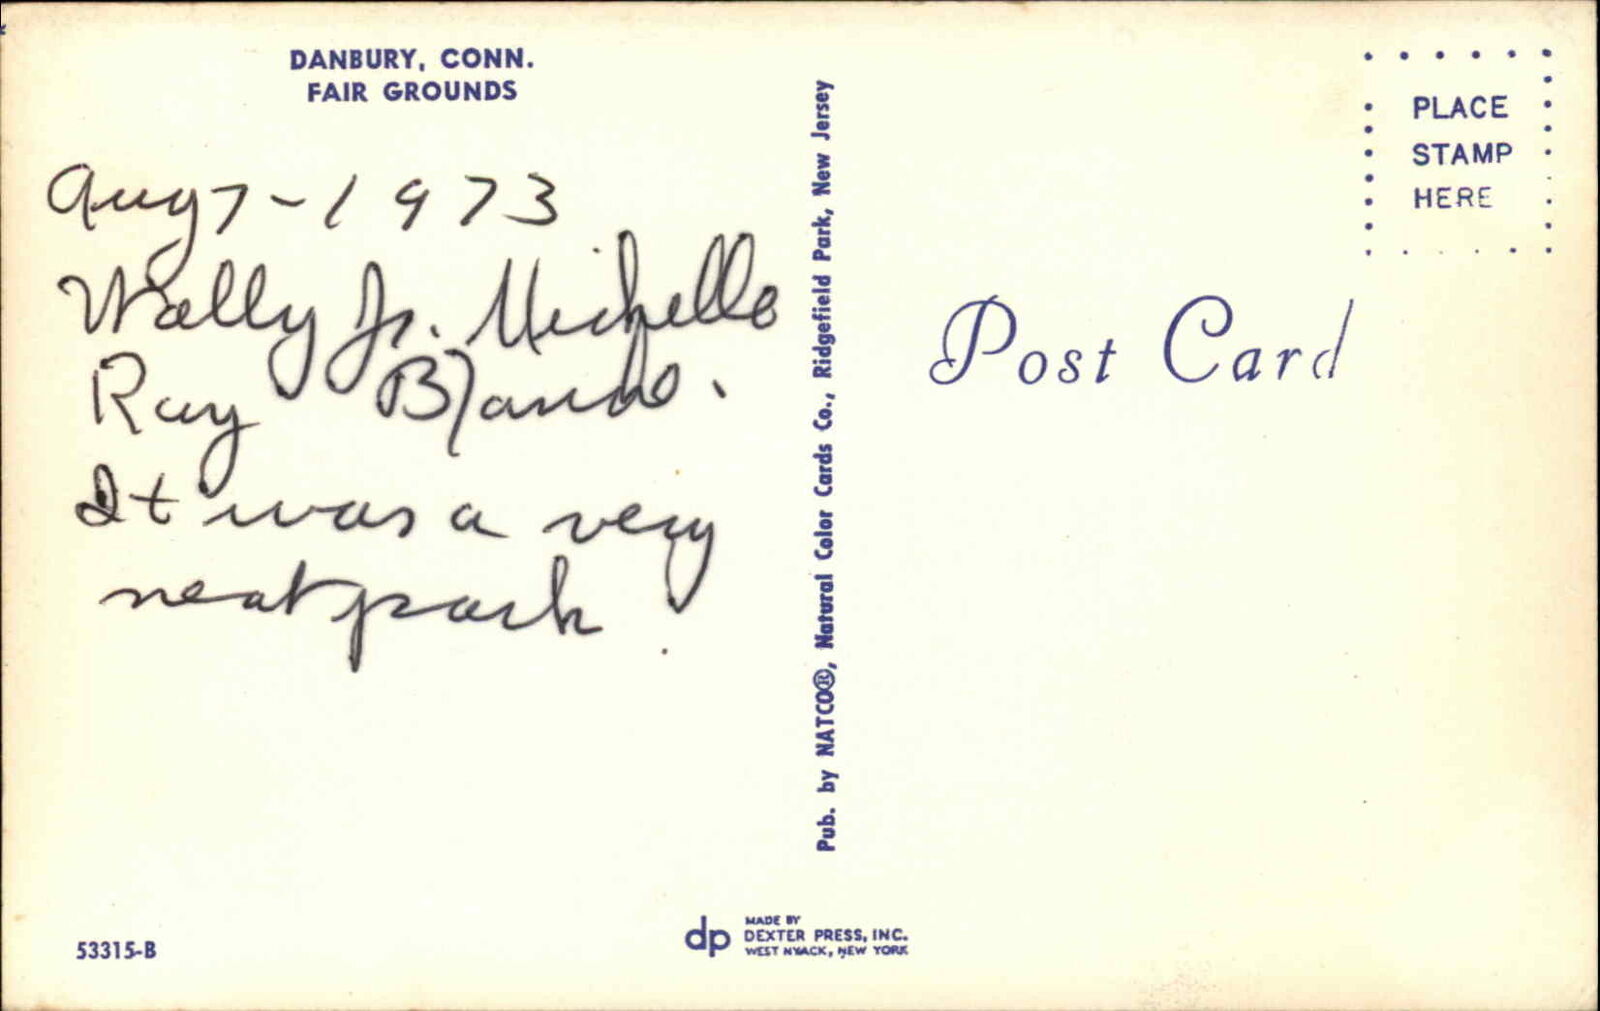 DANBURY, CONN.
FAIR GROUNDS
Aug 7-1973
Wally Jr. Michelle
Ray
It was a very
neat park.
Pub. by NATCO®, Natural Color Cards Co., Ridgefield Park, New Jersey
PLACE
STAMP
HERE
Post Card
53315-B
dp
MADE BY
DEXTER PRESS, INC.
WEST NYACK, NEW YORK